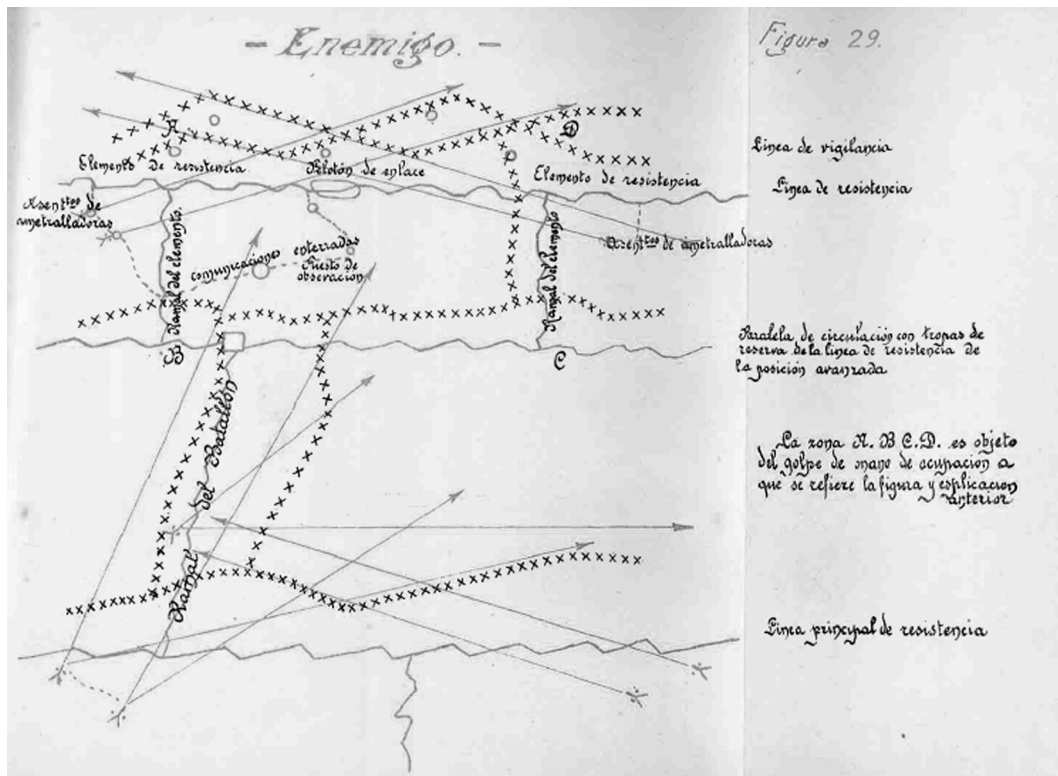 - Enemigo. -
Figura 29.
Linea de vigilancia
A
D
Elemento de resistencia
Pelotón de enlace
Elemento de resistencia
Linea de resistencia
Asentᵗᵒˢ de
ametralladoras
Ramal del elemento.
comunicaciones enterradas
Puesto de
observación
Ramal del elemento
Asentᵗᵒˢ de ametralladoras
B
C
Paralela de circulación con tropas de
reserva de la linea de resistencia de
la posición avanzada
Ramal del Batallón
La zona A. B C. D. es objeto
del golpe de mano de ocupación a
que se refiere la figura y esplicación
anterior
Linea principal de resistencia